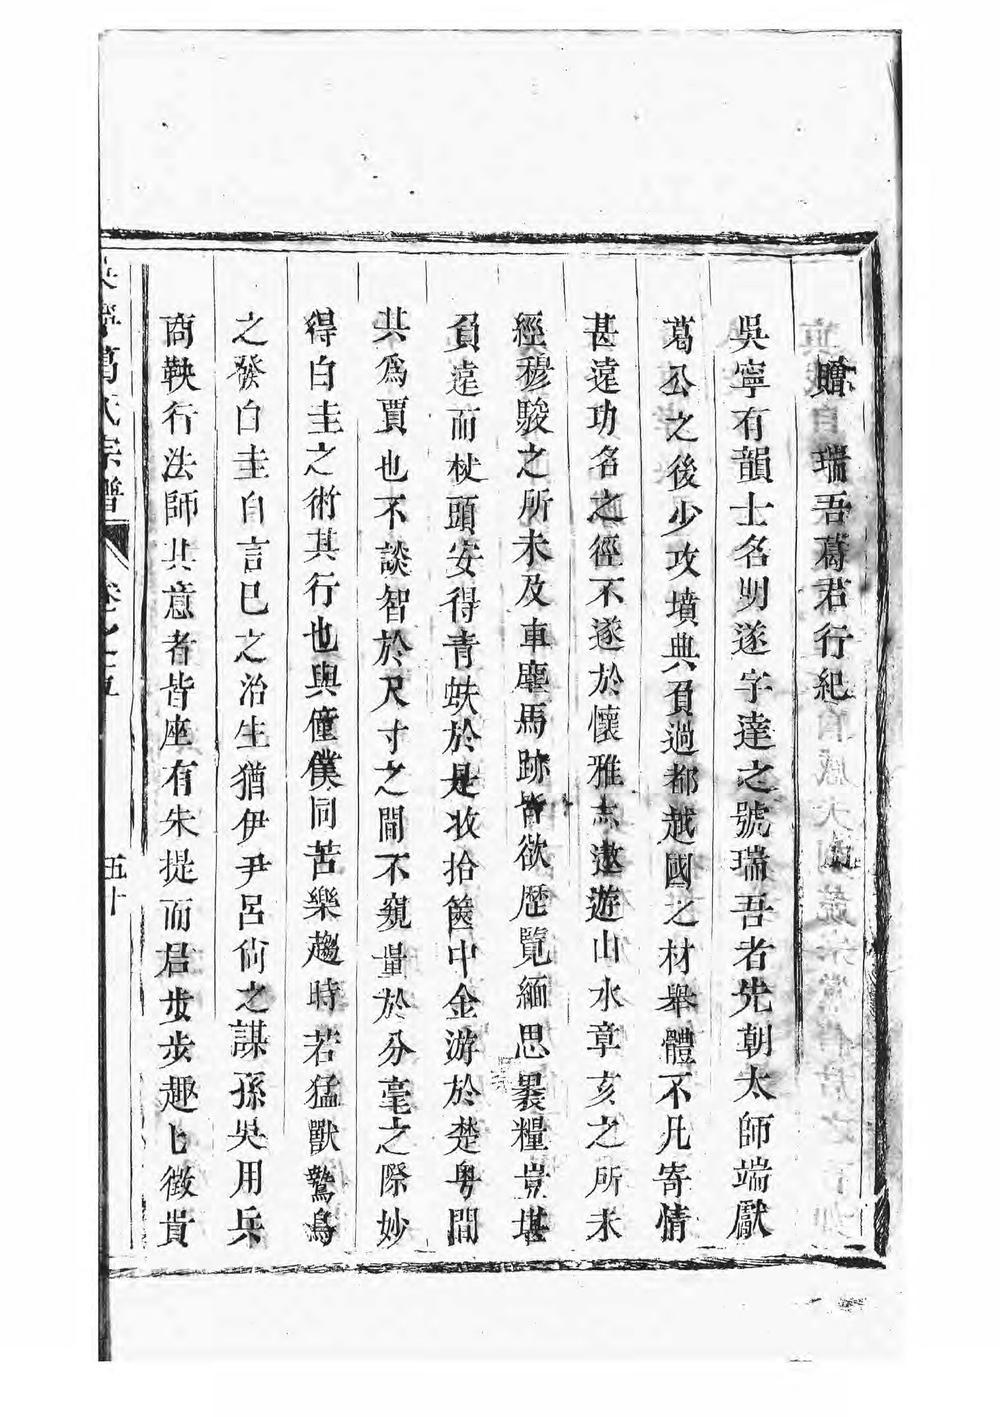 贈瑞吾葛君行紀
吳寧有韻士名明遂字達之號瑞吾者先朝太師端獻
葛公之後少攻墳典負過都越國之材舉體不凡寄情
甚遠功名之徑不遂於懷雅志遨遊山水章亥之所未
經穆駿之所未及車塵馬跡皆欲歷覽緬思褁糧豈堪
負遠而杖頭安得青蚨於是收拾篋中金游於楚粤間
其爲賈也不談智於尺寸之間不窺量於分毫之際妙
得白圭之術其行也與僮僕同苦樂趨時若猛獸鷙鳥
之發白圭自言已之治生猶伊尹呂尙之謀孫吳用兵
商鞅行法師其意者皆座有朱提而君步步趣比徵貴
葛氏宗譜 卷之五 五十